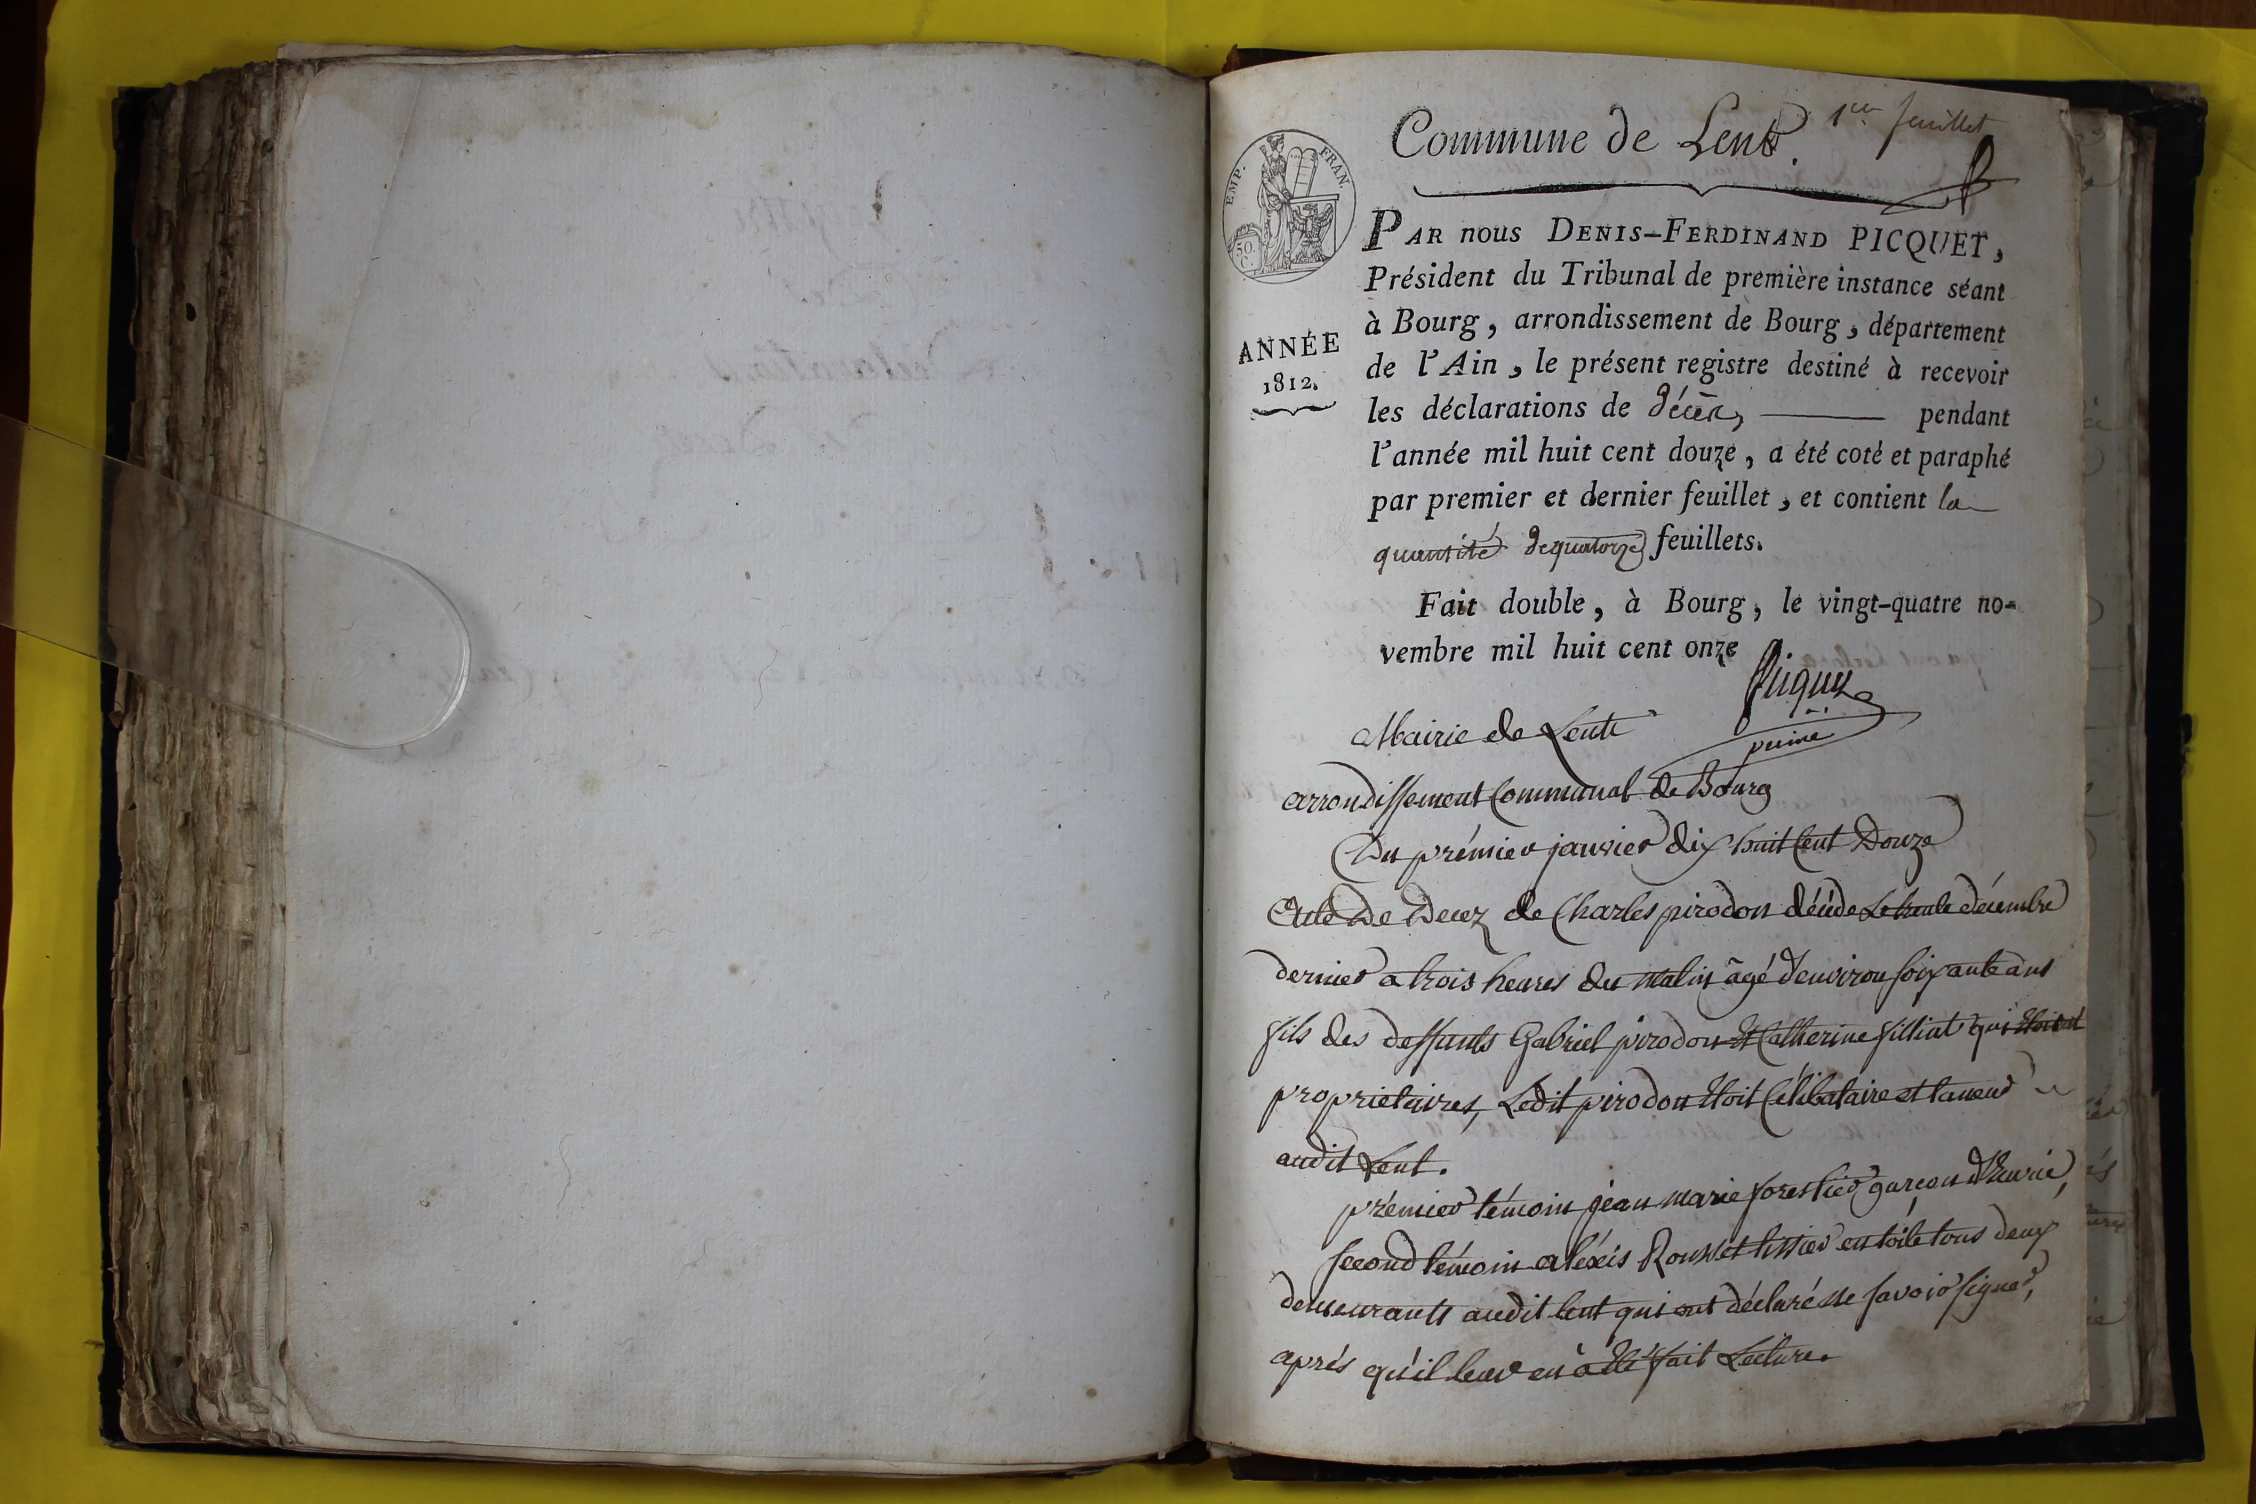 Commune de Lent. 1er feuillet
EMP. FRAN.
50.
C.
PAR nous DENIS-FERDINAND PICQUET,
Président du Tribunal de première instance séant
à Bourg, arrondissement de Bourg, département
ANNÉE
1812.
de l'Ain, le présent registre destiné à recevoir
les déclarations de décès, pendant
l'année mil huit cent douze, a été coté et paraphé
par premier et dernier feuillet, et contient la
quantité de quatorze feuillets.
Fait double, à Bourg, le vingt-quatre no-
vembre mil huit cent onze
Picquet
Mairie de Lent
arrondissement Communal de Bourg
Du prémier janvier dix huit Cent Douze
Acte De Decez de Charles pirodon décédé Le trente décembre
dernier a trois heures du matin âgé d'environ soixante ans
fils des deffunts Gabriel pirodon Et Catherine filliat qui Etoient
proprietaires, Ledit pirodon Etoit Célibataire et taneur
audit Lent.
prémier témoin jean marie forestier garçon d'Ecurie,
second témoin aléxis Rousset tissier en toile tous deux
demeurants audit lent qui ont déclaré ne savoir signer,
aprés qu'il leur en à été fait Lecture.